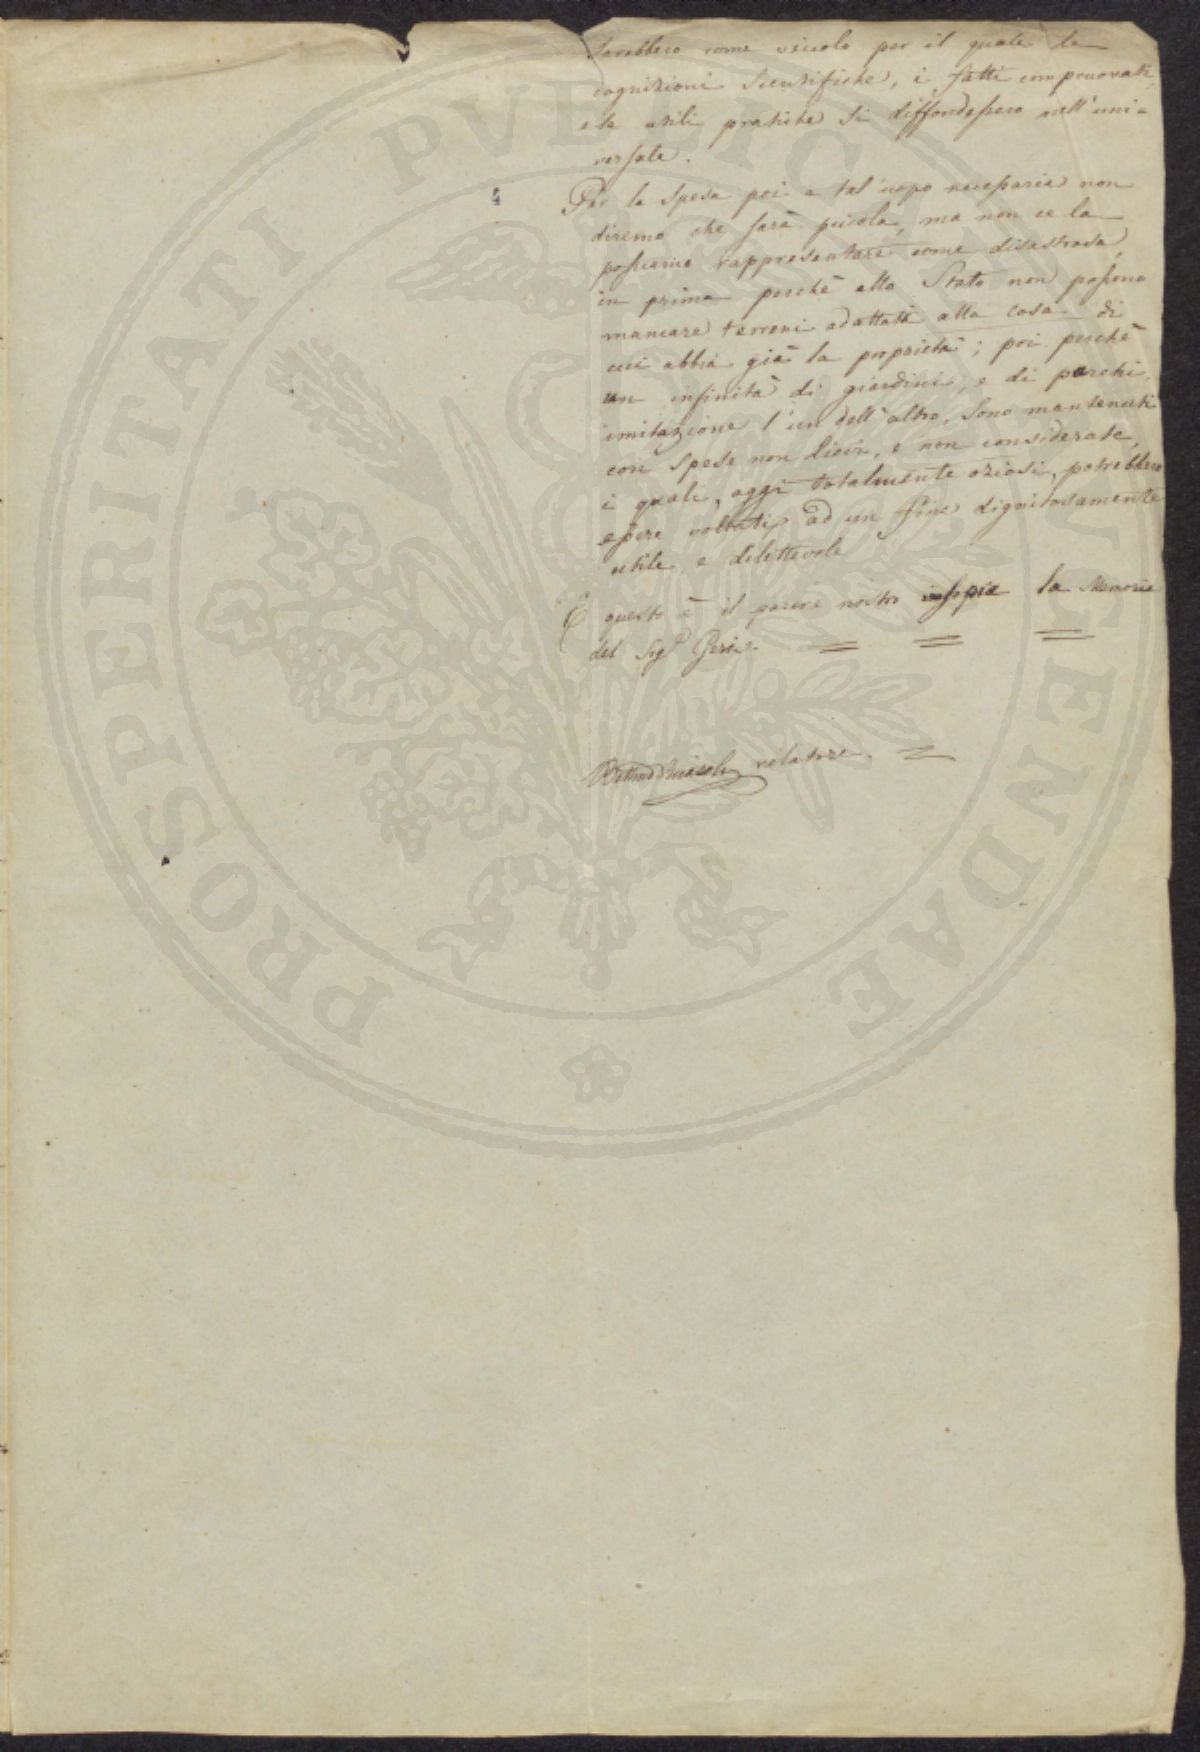 sarebbero come veicolo per il quale le
cognizioni scientifiche, i fatti compruovati,
e le utili pratiche si diffondessero nell'uni=
versale.
Per la spesa poi a tal'uopo necessaria non
diremo che sarà piccola, ma non ce la
possiamo rappresentare come disastrosa,
in prima perchè allo Stato non possono
mancare terreni adattati alla cosa di
cui abbia già la proprietà; poi perchè
un infinità di giardini, e di parchi,
imitazione l'un dell'altro, sono mantenuti
con spese non lievi, e non considerate,
i quali, oggi totalmente oziosi, potrebbero
essere voltati ad un fine dignitosamente
utile, e dilettevole
E questo è il parere nostro sopra la Memoria
del Sigr Geri.
Bettino Ricasoli relatore.
PROSPERITATI PVBLICAE AVGENDAE